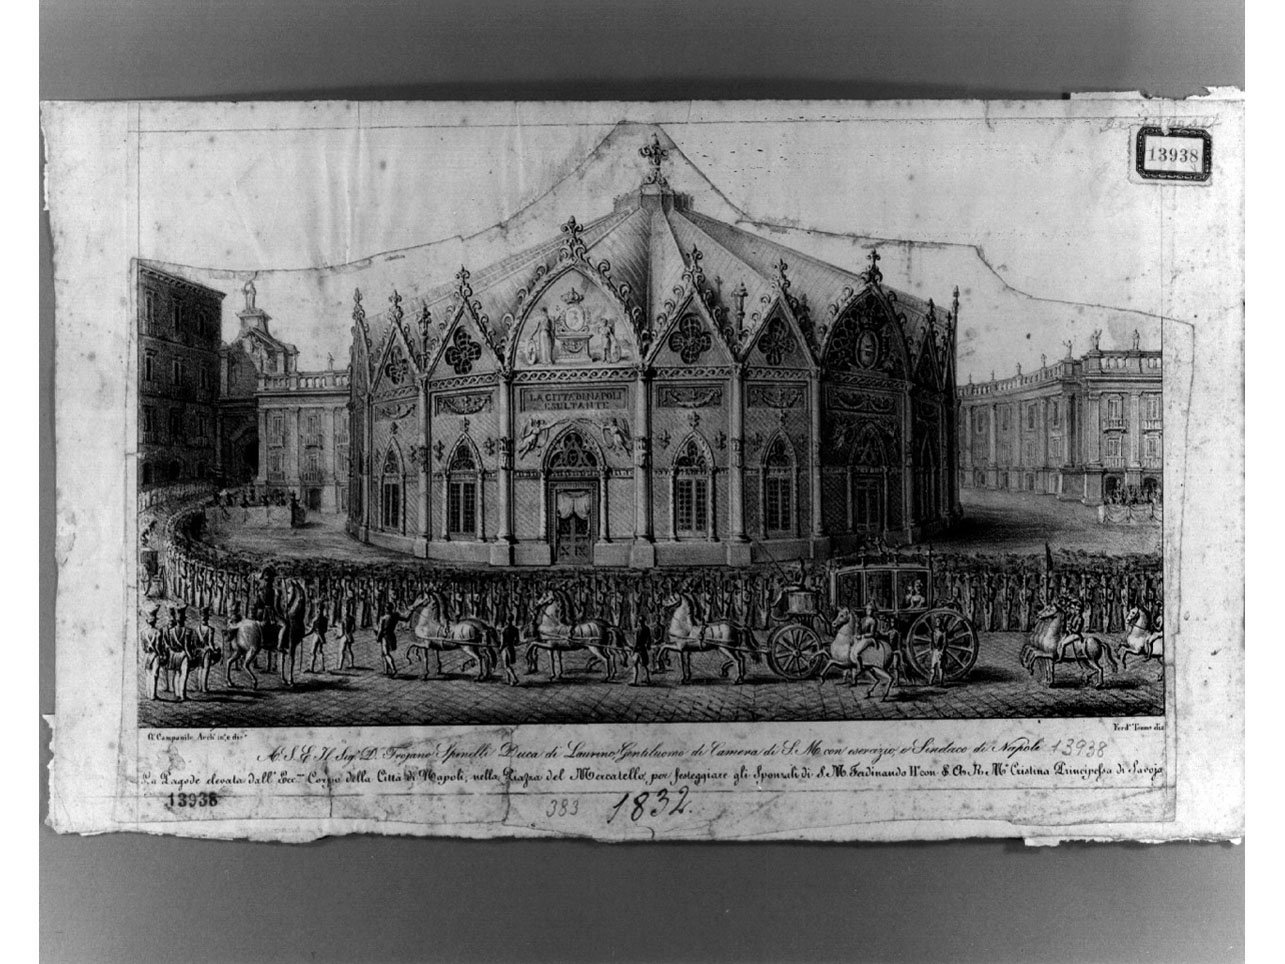 13938
LA CITTA DI NAPOLI
ESULTANTE
G. Campanile Arch. inv. e dir.
Ferd.
A S. E. Il Sig. D. Trojano Spinelli Duca di Laurino, Gentiluomo di Camera di S. M. con esercizio, e Sindaco di Napoli 13938
La Pagode elevata dall' Ecc.mo Corpo della Città di Napoli, nella Piazza del Mercatello, per festeggiare gli Sponzali di S. M. Ferdinando II con S. A. R. M. Cristina Principessa di Savoja
13938
383
1832.